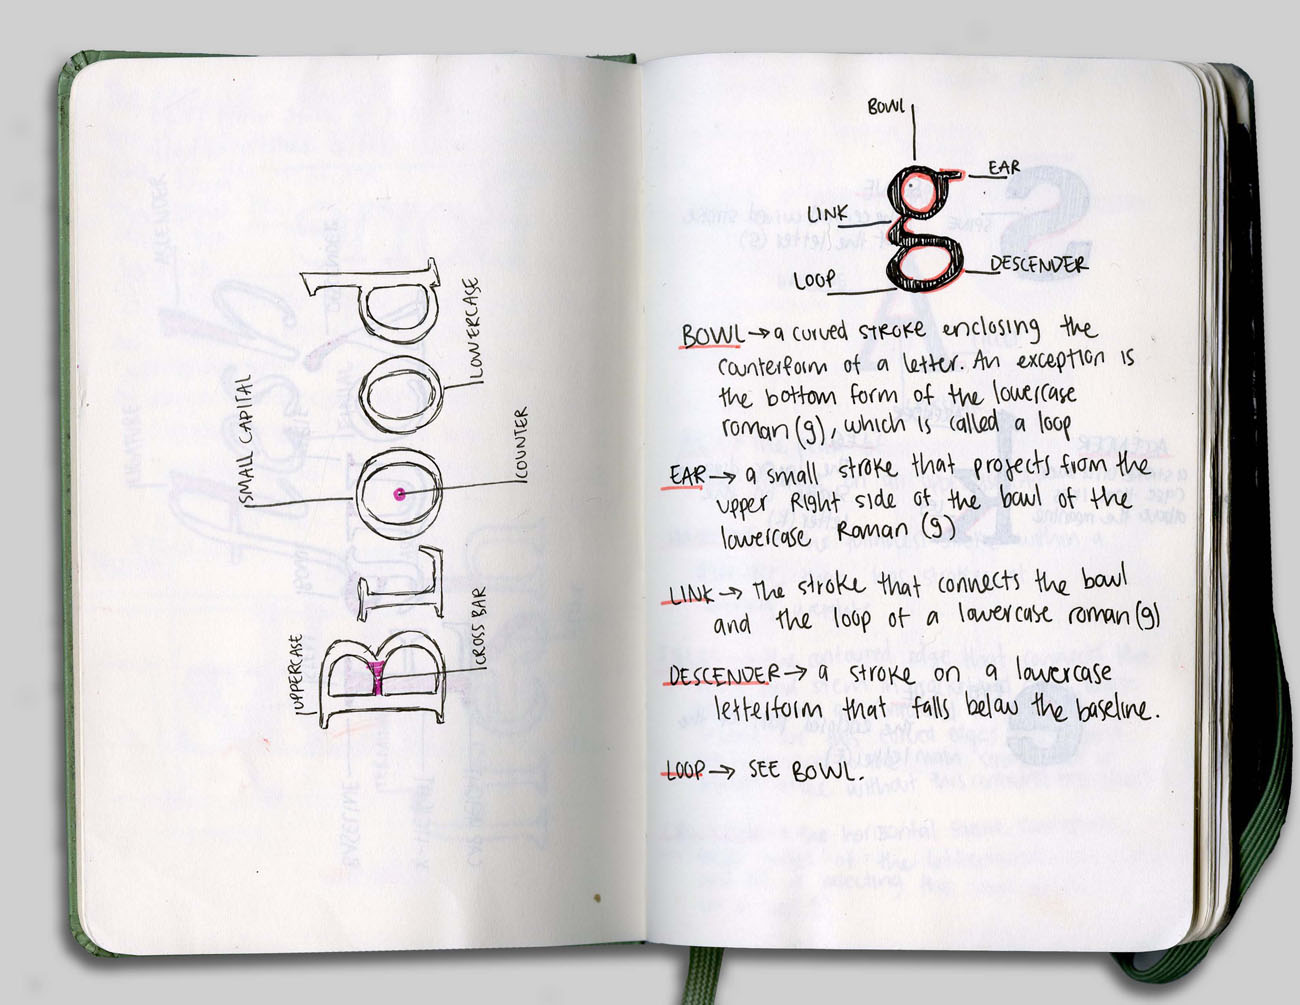 UPPERCASE
SMALL CAPITAL
BLOOd
CROSS BAR
COUNTER
LOWERCASE
BOWL
g
EAR
LINK
LOOP
DESCENDER
BOWL → a curved stroke enclosing the
counterform of a letter. An exception is
the bottom form of the lowercase
roman (g), which is called a loop
EAR → a small stroke that projects from the
upper Right side of the bowl of the
lowercase Roman (g)
LINK → The stroke that connects the bowl
and the loop of a lowercase roman (g)
DESCENDER → a stroke on a lowercase
letterform that falls below the baseline.
LOOP → SEE BOWL.